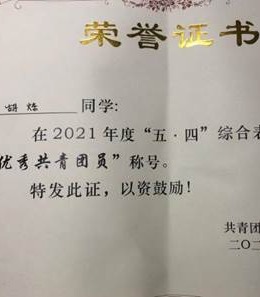 荣誉证书
胡烁 同学:
在2021年度“五·四”综合表
优秀共青团员”称号。
特发此证，以资鼓励！
共青团
二〇二